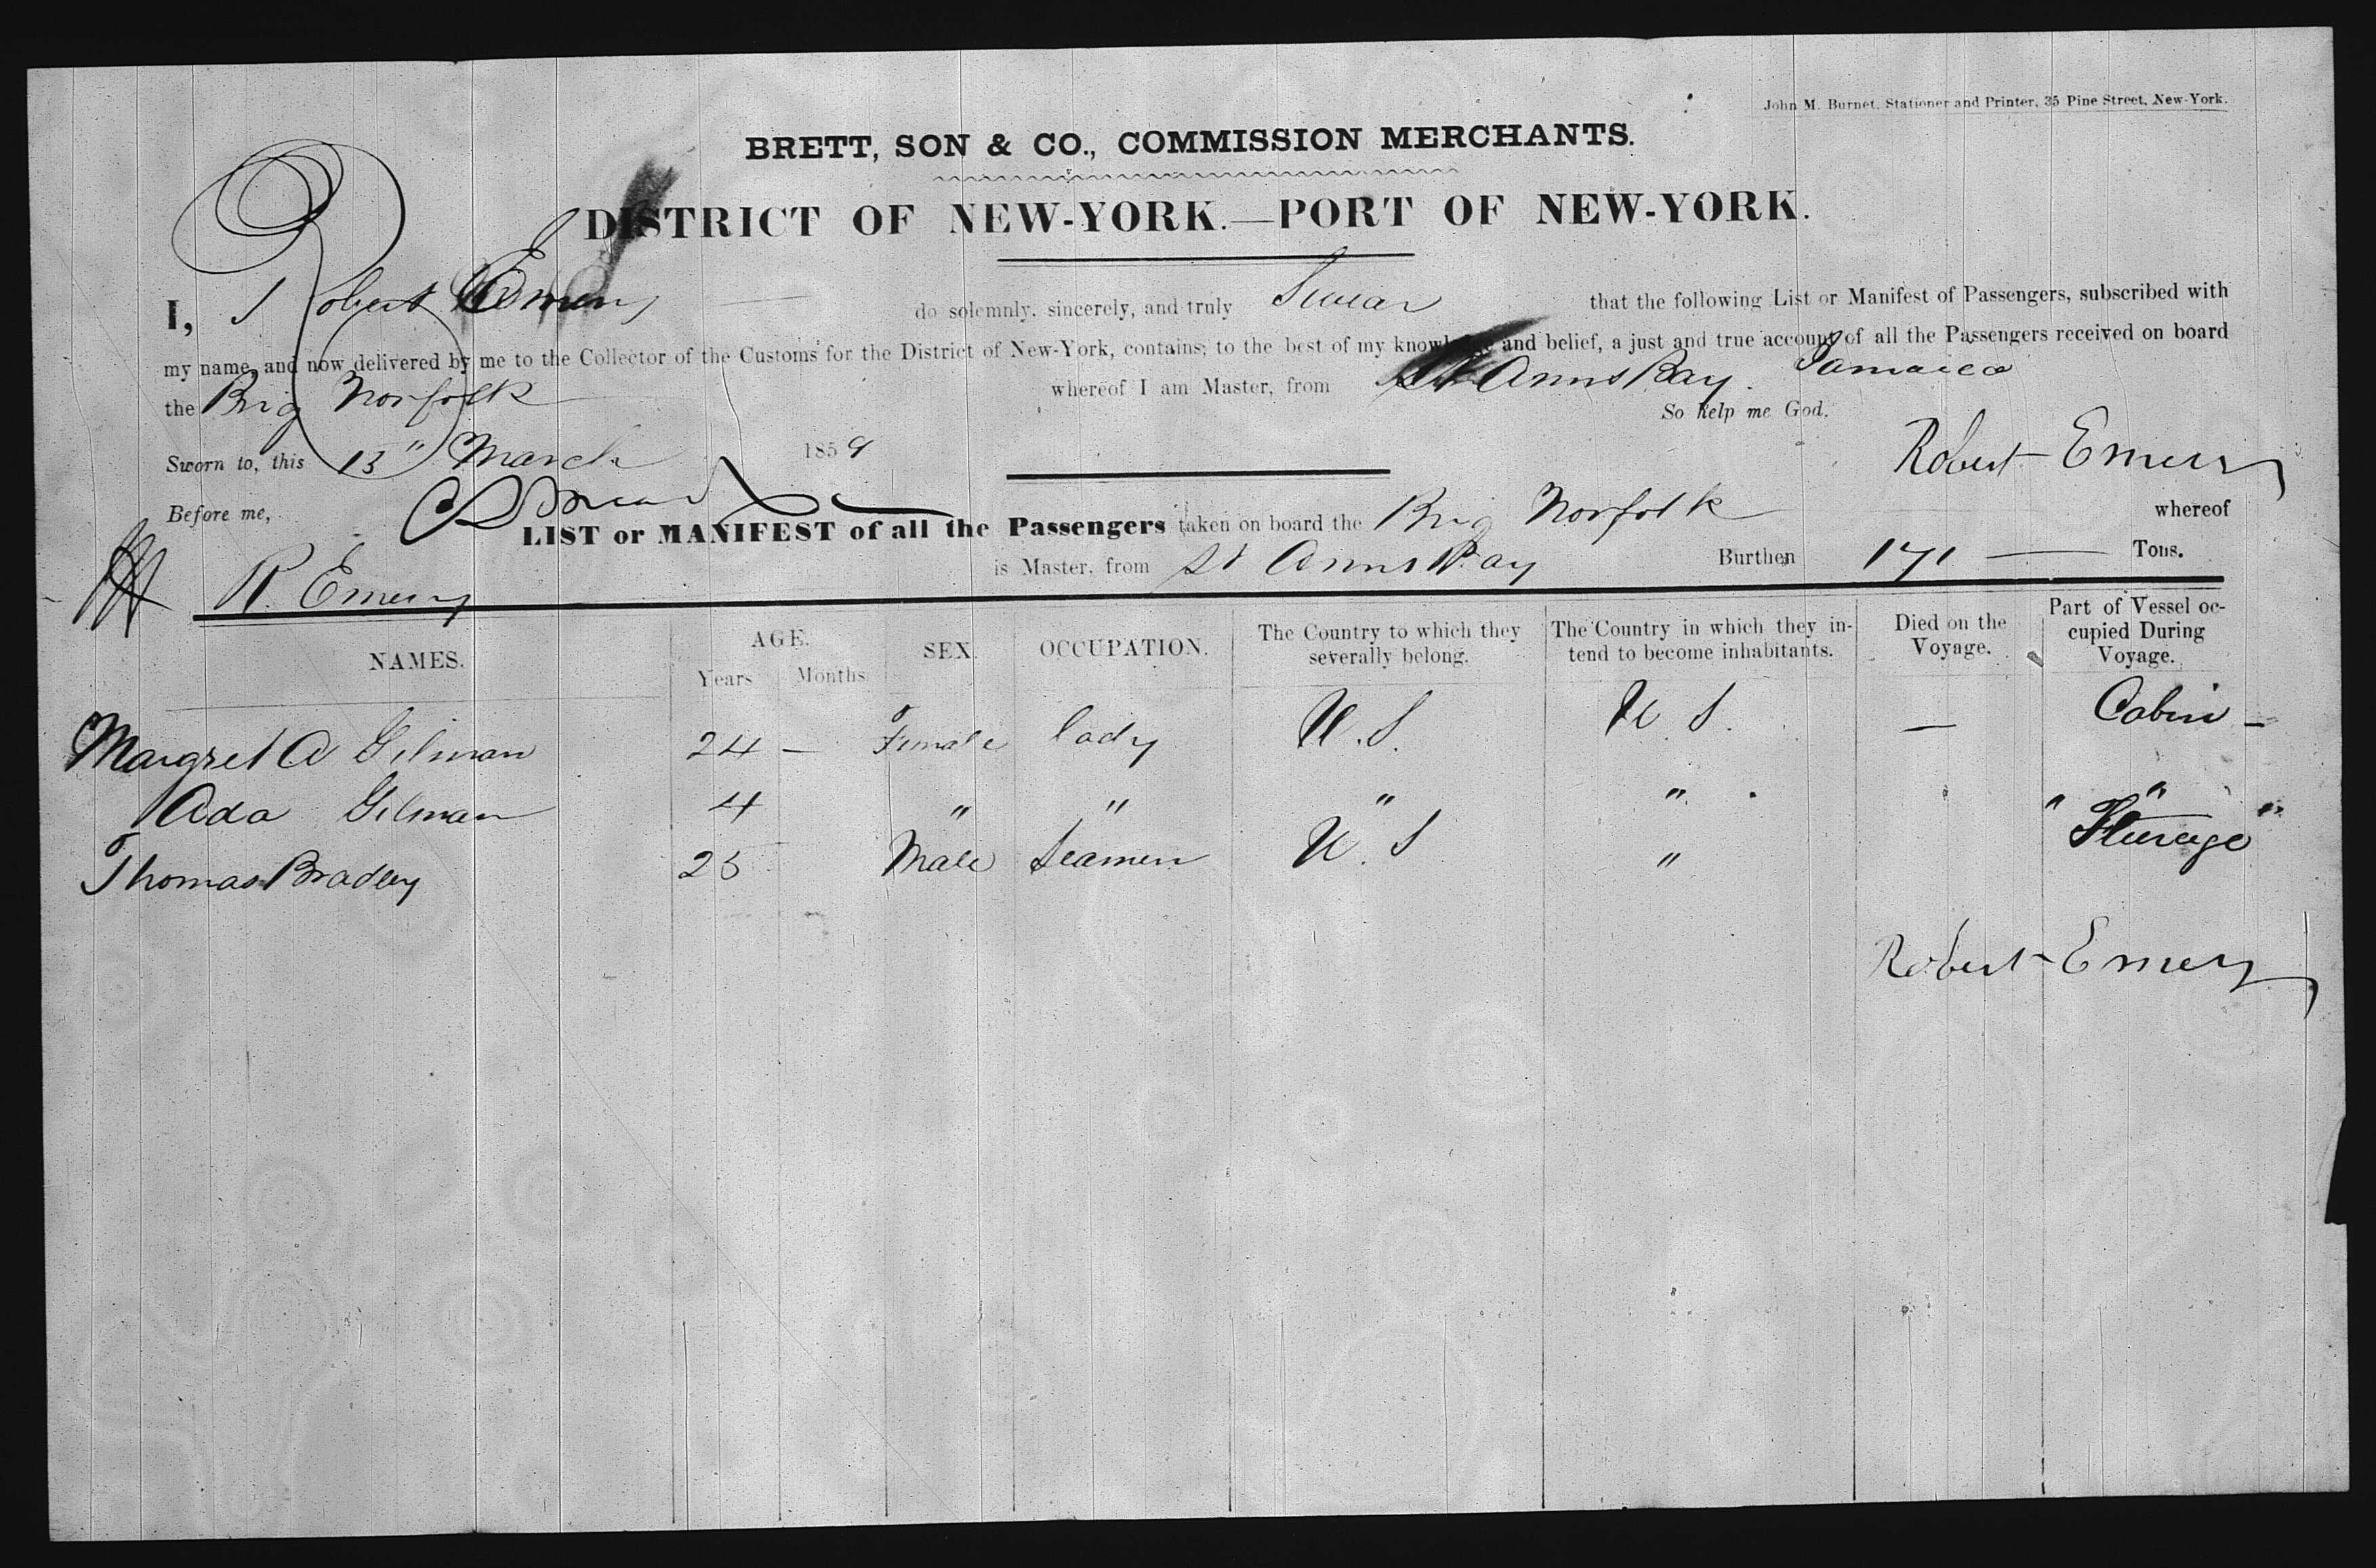 John M. Burnet, Stationer and Printer, 35 Pine Street, New-York.
BRETT, SON & CO., COMMISSION MERCHANTS.
DISTRICT OF NEW-YORK.—PORT OF NEW-YORK.
I, I Robert Emery do solemnly, sincerely, and truly Swear that the following List or Manifest of Passengers, subscribed with
my name, and now delivered by me to the Collector of the Customs for the District of New-York, contains; to the best of my knowledge and belief, a just and true account of all the Passengers received on board
the Brig Norfolk whereof I am Master, from St Anns Bay. Jamaica
So help me God.
Sworn to, this 15" March 1859 Robert Emery
Before me,
LIST or MANIFEST of all the Passengers taken on board the Brig Norfolk whereof
R. Emery is Master, from St Anns Bay Burthen 171 — Tons.
NAMES. AGE. Years Months SEX. OCCUPATION. The Country to which they severally belong. The Country in which they intend to become inhabitants. Died on the Voyage. Part of Vessel occupied During Voyage.
Margret A Gilman 24 — Female lady U.S. U.S. — Cabin —
Ada Gilman 4 " " " " " " "
Thomas Bradey 25 Male Seamen U.S " Steurage
Robert Emery